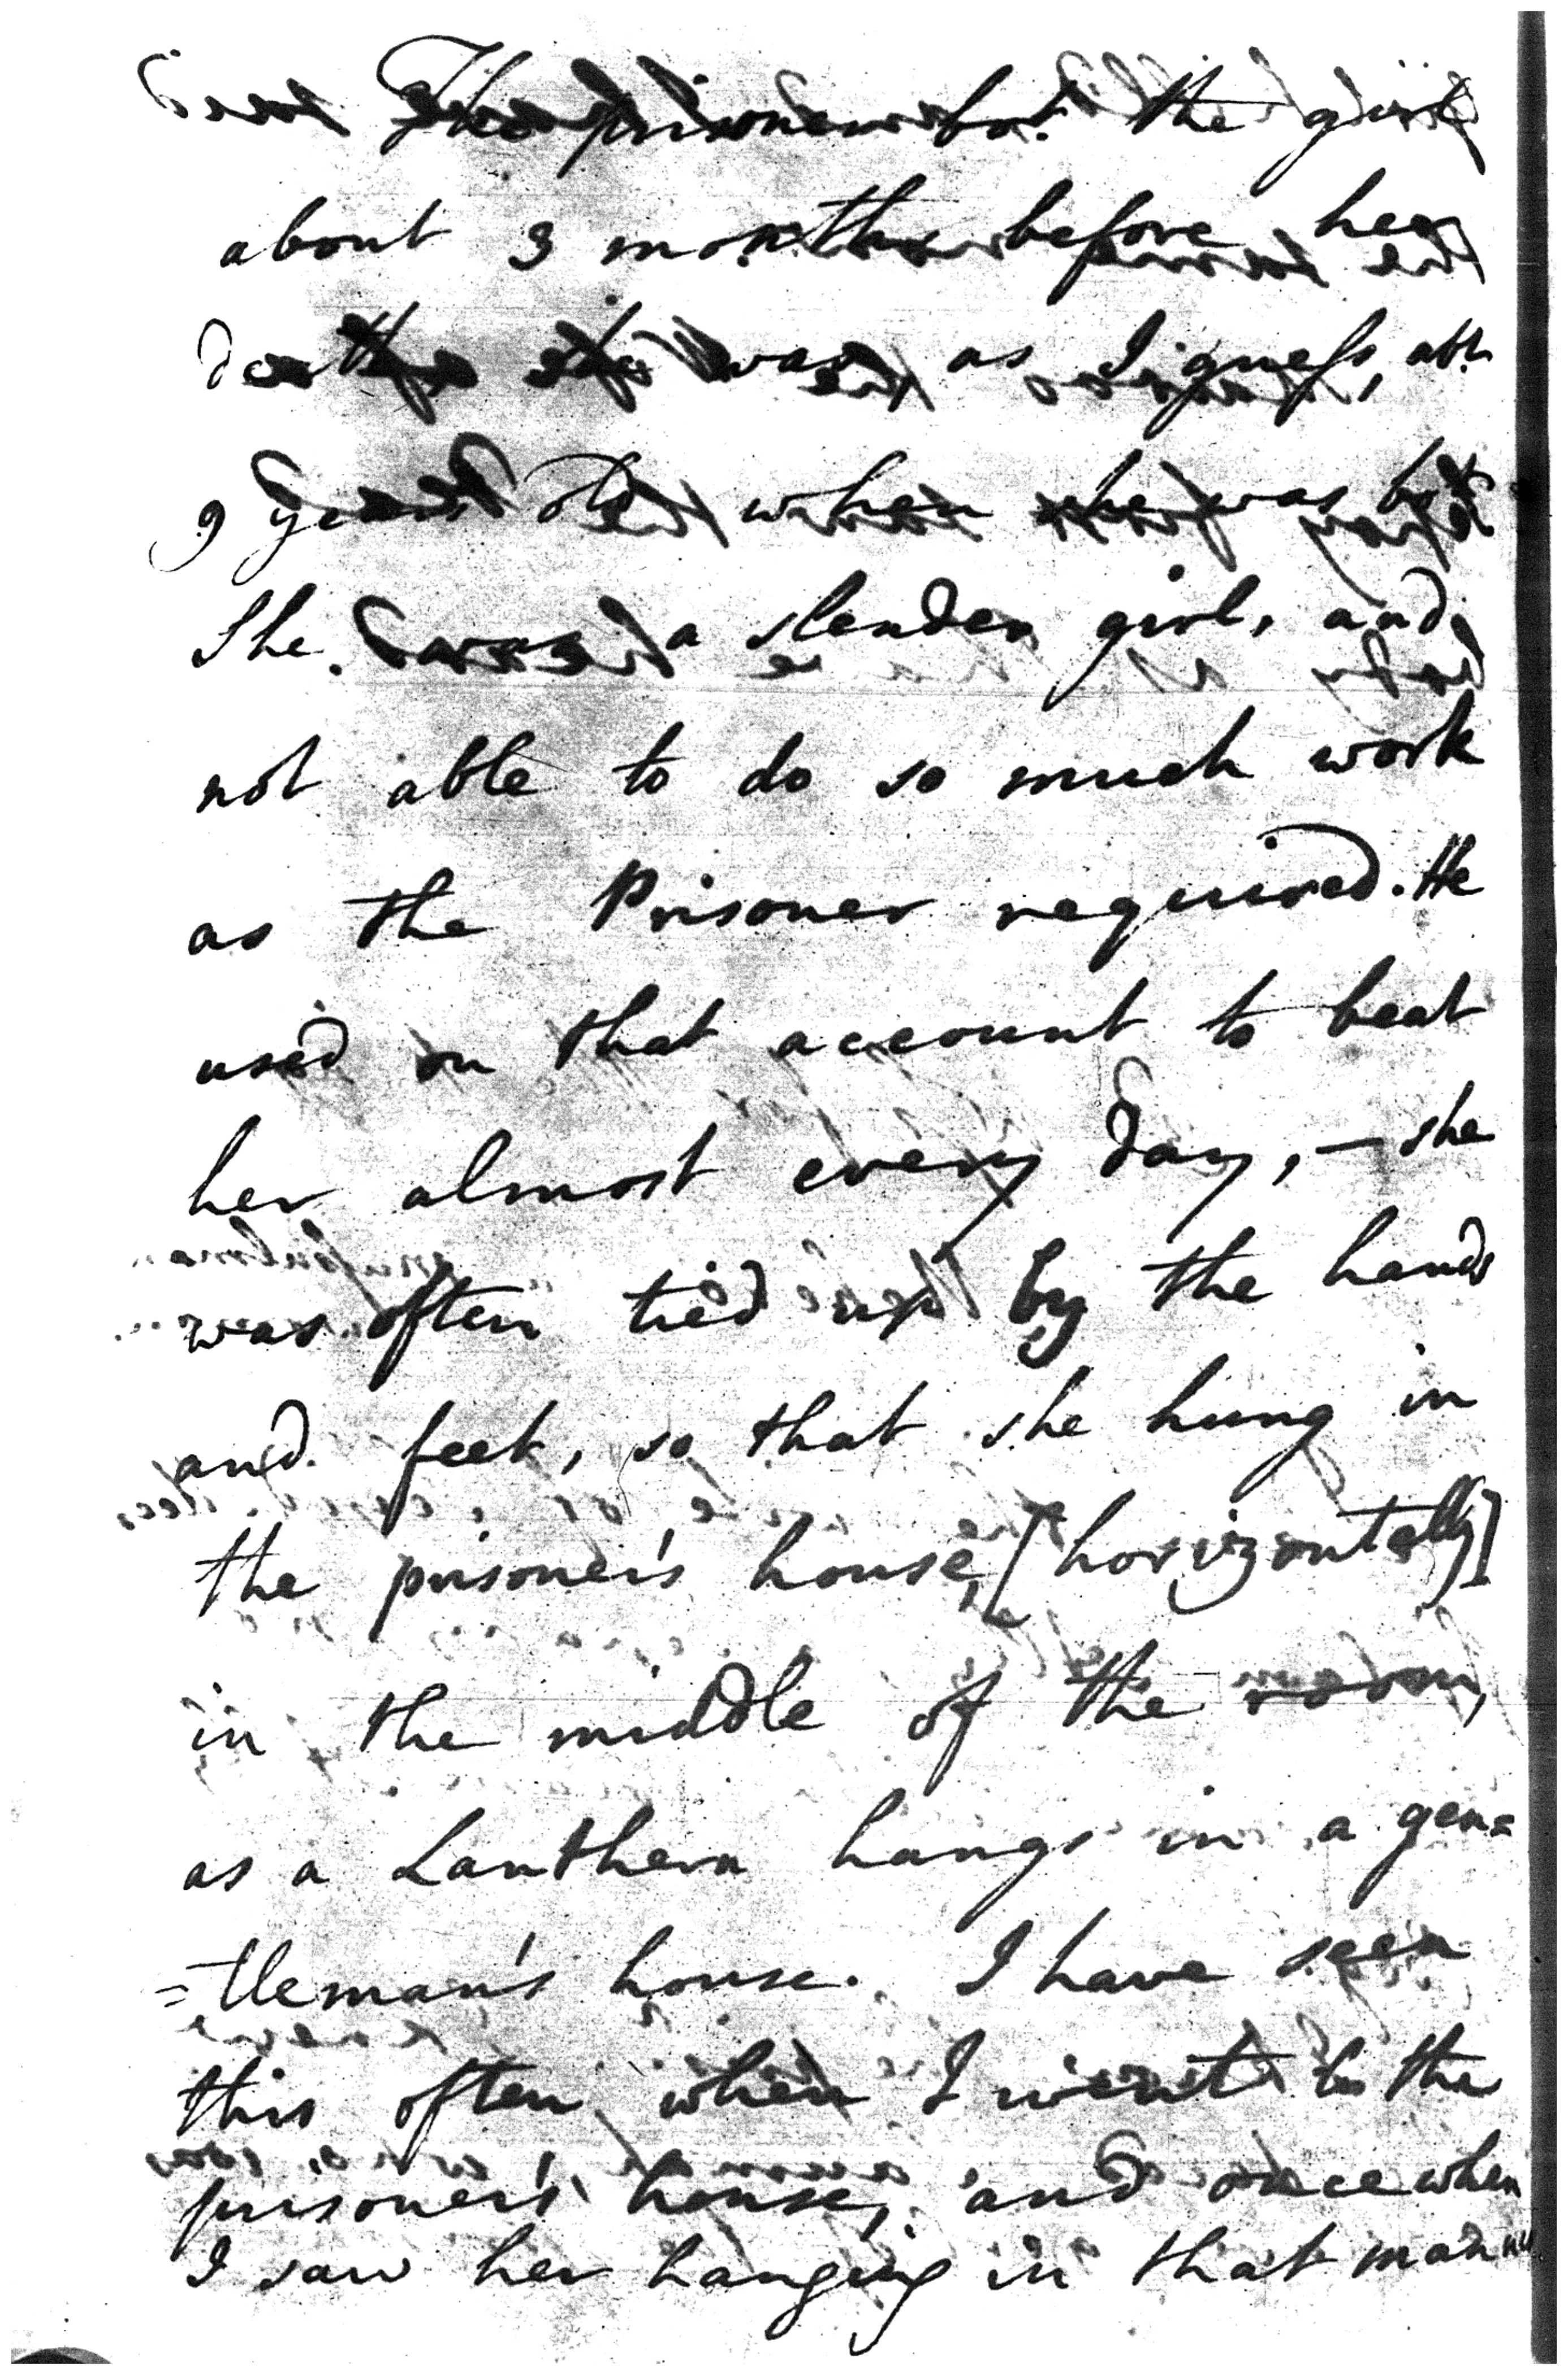 The prisoner bot. the girl
about 3 months before her
death she was as I guess, abt.
9 years old when she was bot
She was a slender girl, and
not able to do so much work
as the Prisoner required. He
used on that account to beat
her almost every day, – she
was often tied up by the hands
and feet, so that she hung in
the prisoner's house, [horizontally]
in the middle of the room,
as a Lanthern hangs in a gen=
=tleman's house. I have seen
this often when I went to the
prisoner's house, and once when
I saw her hanging in that mann